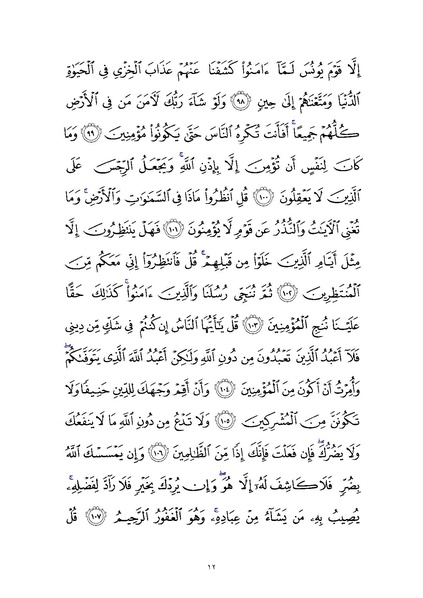 إِلَّا قَوْمَ يُونُسَ لَمَّآ ءَامَنُوا۟ كَشَفْنَا عَنْهُمْ عَذَابَ ٱلْخِزْىِ فِى ٱلْحَيَوٰةِ
ٱلدُّنْيَا وَمَتَّعْنَٰهُمْ إِلَىٰ حِينٍ ﴿٩٨﴾ وَلَوْ شَآءَ رَبُّكَ لَءَامَنَ مَن فِى ٱلْأَرْضِ
كُلُّهُمْ جَمِيعًا ۚ أَفَأَنتَ تُكْرِهُ ٱلنَّاسَ حَتَّىٰ يَكُونُوا۟ مُؤْمِنِينَ ﴿٩٩﴾ وَمَا
كَانَ لِنَفْسٍ أَن تُؤْمِنَ إِلَّا بِإِذْنِ ٱللَّهِ ۚ وَيَجْعَلُ ٱلرِّجْسَ عَلَى
ٱلَّذِينَ لَا يَعْقِلُونَ ﴿١٠٠﴾ قُلِ ٱنظُرُوا۟ مَاذَا فِى ٱلسَّمَٰوَٰتِ وَٱلْأَرْضِ ۚ وَمَا
تُغْنِى ٱلْءَايَٰتُ وَٱلنُّذُرُ عَن قَوْمٍ لَّا يُؤْمِنُونَ ﴿١٠١﴾ فَهَلْ يَنتَظِرُونَ إِلَّا
مِثْلَ أَيَّامِ ٱلَّذِينَ خَلَوْا۟ مِن قَبْلِهِمْ ۚ قُلْ فَٱنتَظِرُوٓا۟ إِنِّى مَعَكُم مِّنَ
ٱلْمُنتَظِرِينَ ﴿١٠٢﴾ ثُمَّ نُنَجِّى رُسُلَنَا وَٱلَّذِينَ ءَامَنُوا۟ ۚ كَذَٰلِكَ حَقًّا
عَلَيْنَا نُنجِ ٱلْمُؤْمِنِينَ ﴿١٠٣﴾ قُلْ يَٰٓأَيُّهَا ٱلنَّاسُ إِن كُنتُمْ فِى شَكٍّ مِّن دِينِى
فَلَآ أَعْبُدُ ٱلَّذِينَ تَعْبُدُونَ مِن دُونِ ٱللَّهِ وَلَٰكِنْ أَعْبُدُ ٱللَّهَ ٱلَّذِى يَتَوَفَّىٰكُمْ ۖ
وَأُمِرْتُ أَنْ أَكُونَ مِنَ ٱلْمُؤْمِنِينَ ﴿١٠٤﴾ وَأَنْ أَقِمْ وَجْهَكَ لِلدِّينِ حَنِيفًا وَلَا
تَكُونَنَّ مِنَ ٱلْمُشْرِكِينَ ﴿١٠٥﴾ وَلَا تَدْعُ مِن دُونِ ٱللَّهِ مَا لَا يَنفَعُكَ
وَلَا يَضُرُّكَ ۖ فَإِن فَعَلْتَ فَإِنَّكَ إِذًا مِّنَ ٱلظَّٰلِمِينَ ﴿١٠٦﴾ وَإِن يَمْسَسْكَ ٱللَّهُ
بِضُرٍّ فَلَا كَاشِفَ لَهُۥٓ إِلَّا هُوَ ۖ وَإِن يُرِدْكَ بِخَيْرٍ فَلَا رَآدَّ لِفَضْلِهِۦ ۚ
يُصِيبُ بِهِۦ مَن يَشَآءُ مِنْ عِبَادِهِۦ ۚ وَهُوَ ٱلْغَفُورُ ٱلرَّحِيمُ ﴿١٠٧﴾ قُلْ
١٢